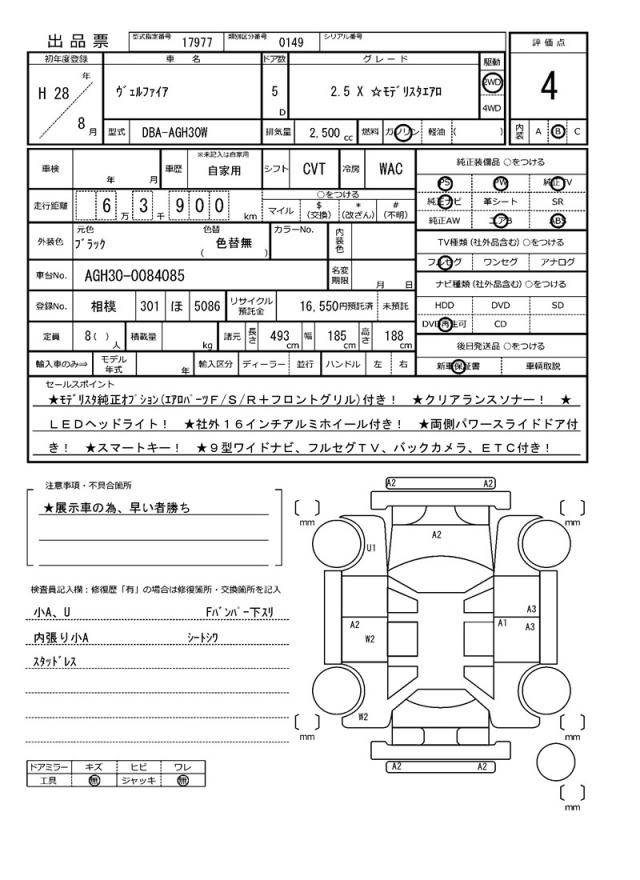 出品票 型式指定番号 17977 類別区分番号 0149 シリアル番号
評価点
4
内装 A B C
初年度登録 車名 ドア数 グレード 駆動
H 28 年 8 月
ヴェルファイア 5 D 2.5 X ☆モデリスタエアロ 2WD
4WD
型式 DBA-AGH30W 排気量 2,500 cc 燃料 ガソリン 軽油 ( )
車検 年 月 車歴 ※未記入は自家用 自家用 シフト CVT 冷房 WAC
走行距離 6 3 9 0 0 万 千 km
○をつける
マイル $ (交換) * (改ざん) # (不明)
外装色 元色 ブラック 色替 ( 色替無 ) カラーNo. 内装色
車台No. AGH30-0084085 名変期限 月 日
登録No. 相模 301 ほ 5086 リサイクル預託金 16,550円預託済 未預託
定員 8( ) 人 積載量 kg 諸元 長さ 493 cm 幅 185 cm 高さ 188 cm
輸入車のみ⇒ モデル年式 年 輸入区分 ディーラー 並行 ハンドル 左 右
純正装備品 ○をつける
PS PW 純正TV
純正ナビ 革シート SR
純正AW エアB ABS
TV種類(社外品含む)○をつける
フルセグ ワンセグ アナログ
ナビ種類(社外品含む)○をつける
HDD DVD SD
DVD再生可 CD
後日発送品 ○をつける
新車保証書 車輌取説
セールスポイント
★モデリスタ純正オプション(エアロパーツF/S/R+フロントグリル)付き! ★クリアランスソナー! ★
LEDヘッドライト! ★社外16インチアルミホイール付き! ★両側パワースライドドア付
き! ★スマートキー! ★9型ワイドナビ、フルセグTV、バックカメラ、ETC付き!
注意事項・不具合箇所
★展示車の為、早い者勝ち
検査員記入欄:修復歴「有」の場合は修復箇所・交換箇所を記入
小A、U Fバンパー下スリ
内張り小A シートシワ
スタッドレス
ドアミラー キズ ヒビ ワレ
工具 無 ジャッキ 無
A2 A2
[ ] mm [ ] mm
A2
U1
A3
A2 A1 A3
W2
W2
[ ] mm [ ] mm
A2 A2
[ ] mm